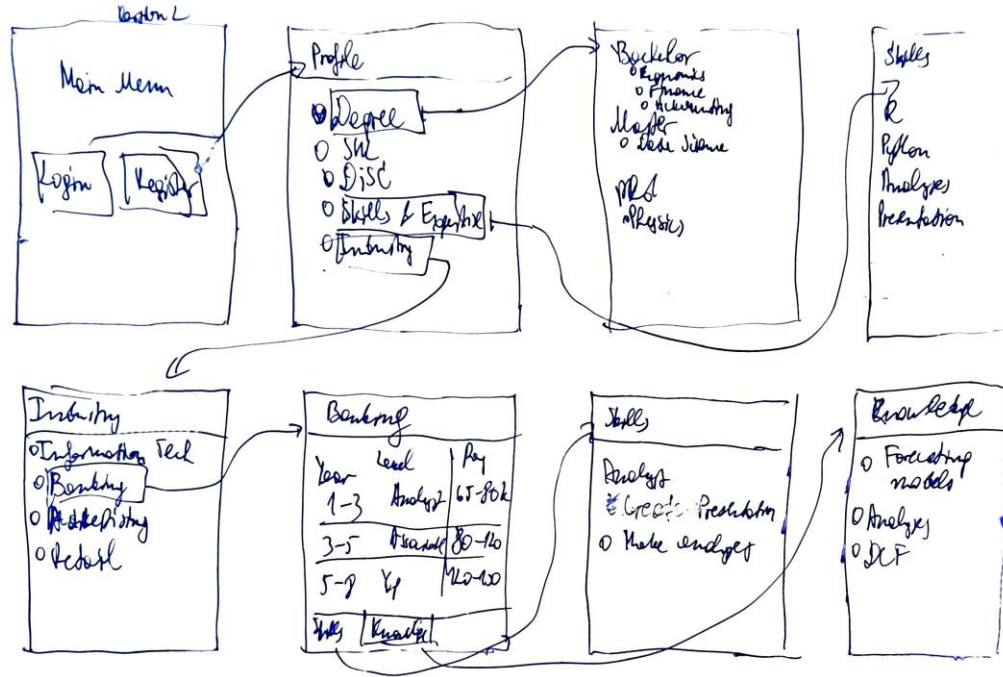 Version 2
Main Menu
Login
Register
Profile
Degree
DiSC
Skills & Expertise
Industry
Bachelor
Economics
Finance
Accounting
Master
Data Science
Physics
Skills
R
Python
Analyses
Presentation
Industry
Information Tech
Banking
Marketing
Retail
Banking
Year Level Pay
1-3 Analyst 65-80k
3-5 Associate 80-120
5-8 VP
Skills Knowledge
Skills
Analyst
Create Presentation
Make analyses
Knowledge
Forecasting
models
Analyses
DCF